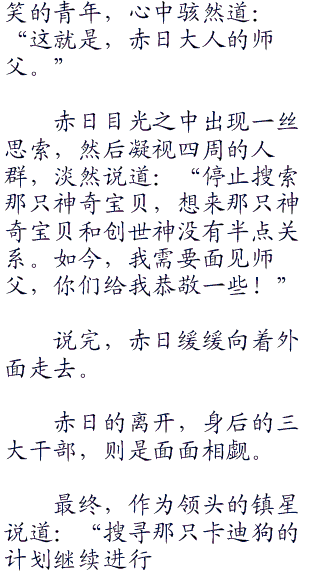 笑的青年，心中骇然道：
“这就是，赤日大人的师
父。”
赤日目光之中出现一丝
思索，然后凝视四周的人
群，淡然说道：“停止搜索
那只神奇宝贝，想来那只神
奇宝贝和创世神没有半点关
系。如今，我需要面见师
父，你们给我恭敬一些！”
说完，赤日缓缓向着外
面走去。
赤日的离开，身后的三
大干部，则是面面相觑。
最终，作为领头的镇星
说道：“搜寻那只卡迪狗的
计划继续进行